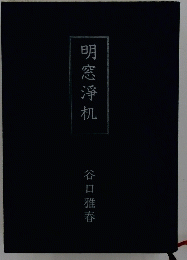 明窓浄机
谷口雅春